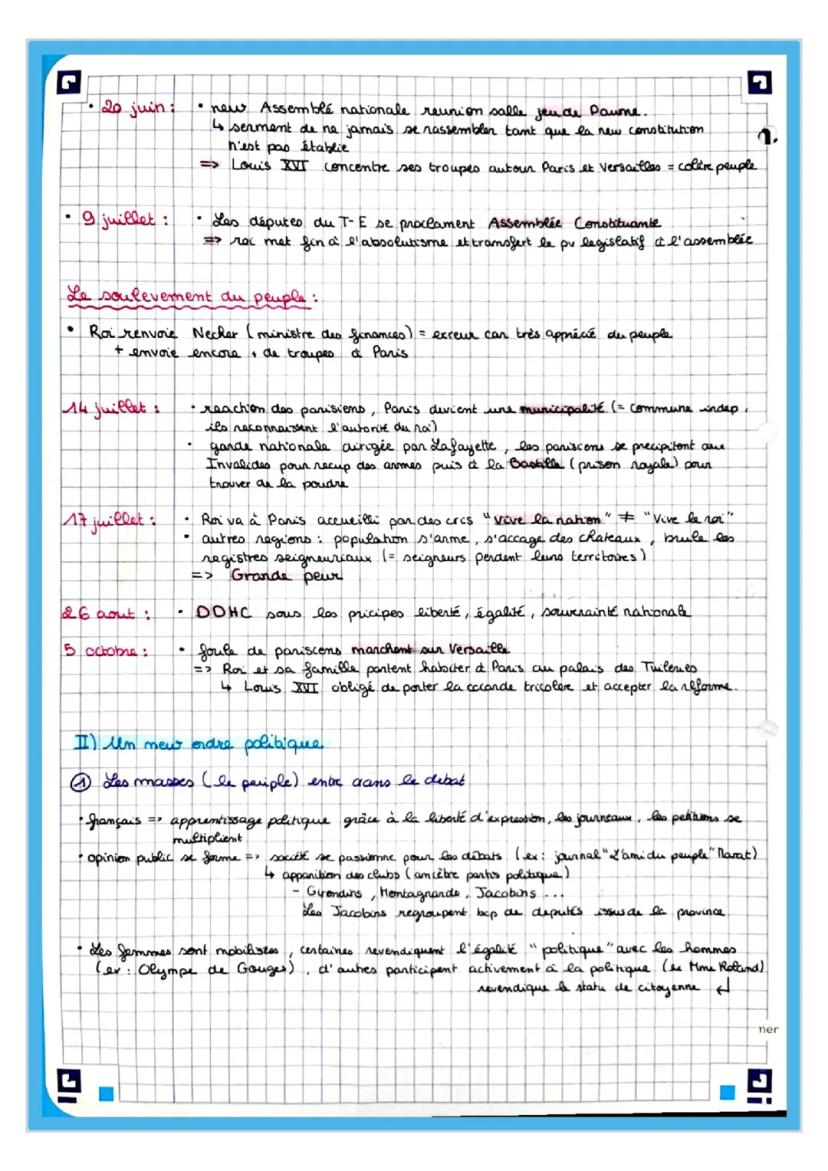 • 20 juin : • new Assemblé nationale reunion salle jeu de Paume.
↳ serment de ne jamais se rassembler tant que la new constitution
n'est pas établie
1.
=> Louis XVI concentre ses troupes autour Paris et Versailles = colère peuple
• 9 juillet : • Les députés du T-E se proclament Assemblée Constituante
=> roi met fin à l'absolutisme et transfert le pv legislatif à l'assemblée
Le soulevement du peuple :
• Roi renvoie Necker (ministre des finances) = erreur car très apprécié du peuple
+ envoie encore + de troupes à Paris
14 juillet : • reaction des parisiens, Paris devient une municipalité (= commune indep.
ils reconnaissent l'autorité du roi)
• garde nationale dirigée par Lafayette, les parisiens se precipitent aux
Invalides pour recup des armes puis à la Bastille (prison royale) pour
trouver de la poudre
17 juillet : • Roi va à Paris accueilli par des cris "vive la nation" ≠ "Vive le roi"
• autres regions : population s'arme, s'accage des chateaux, brule les
registres seigneuriaux (= seigneurs perdent leurs territoires)
=> Grande peur
26 aout : • DDHC sous les pricipes liberté, égalité, souverainté nationale
5 octobre : • foule de parisiens marchent sur Versaille
=> Roi et sa famille partent habiter à Paris au palais des Tuileries
↳ Louis XVI obligé de porter la cocarde tricolore et accepter la réforme.
II) Un new ordre politique
① Les masses (le peuple) entre dans le debat
• français => apprentissage politique grâce à la liberté d'expression, les journeaux, les petitions se
multiplient
• opinion public se forme => société se passionne pour les débats (ex : journal "L'ami du peuple" Marat)
↳ apparition des clubs (ancêtre partis politique)
- Girondins, Montagnards, Jacobins ...
Les Jacobins regroupent bcp de deputés issus de la province
• Les femmes sont mobilisées, certaines revendiquent l'égalité "politique" avec les hommes
(ex : Olympe de Gouges), d'autres participent activement à la politique (ex Mme Roland)
revendique le statu de citoyenne ↵
ner